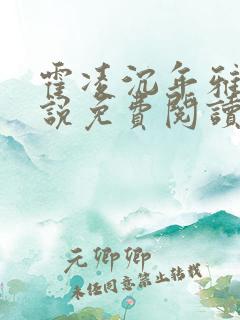 霍凌沉年雅
說免費閱讀
元卿卿
未经同意禁止转载